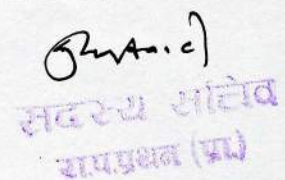 सदस्य सचिव
रा.प.प्रथन (प्रा.)